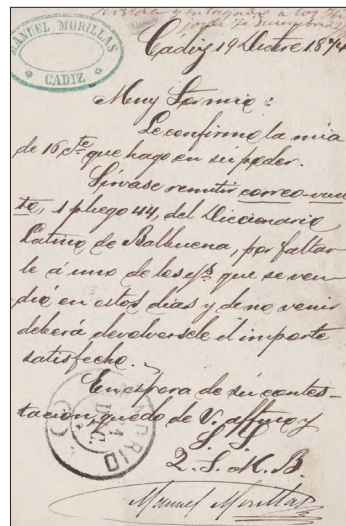 MANUEL MORILLAS
CADIZ
Cadiz 19 Dicbre 1874
Muy Sr mio:
Le confirmo la mia
de 16 Cte que hago en su poder.
Sirvase remitir correo-vuel
to, 1 pliego 44, del Diccionario
Latino de Balbuena, por faltar
le á uno de los ejs que se ven
dió en estos dias y de no venir
deberá devolversele el importe
satisfecho.
En espera de su contes-
tacion, quedo de V. affmo y
S. S.
Q. S. M. B.
Manuel Morillas